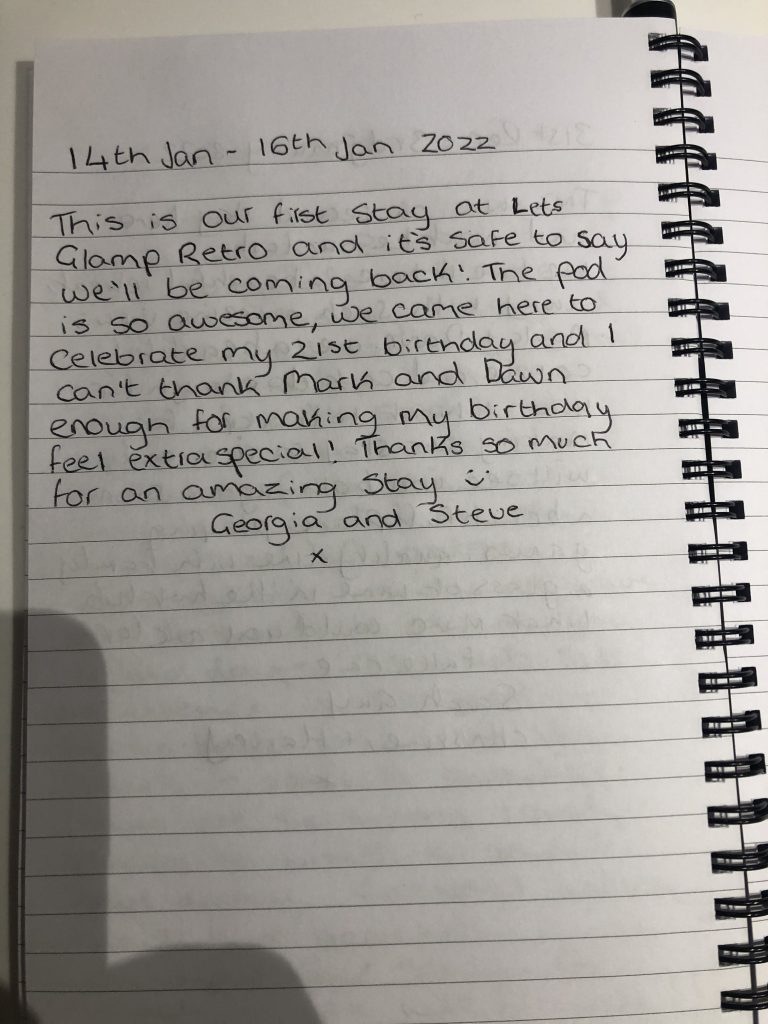 14th Jan - 16th Jan 2022
This is our first stay at Lets
Glamp Retro and it's safe to say
we'll be coming back! The pod
is so awesome, we came here to
celebrate my 21st birthday and I
can't thank Mark and Dawn
enough for making my birthday
feel extra special! Thanks so much
for an amazing stay :)
Georgia and Steve
x